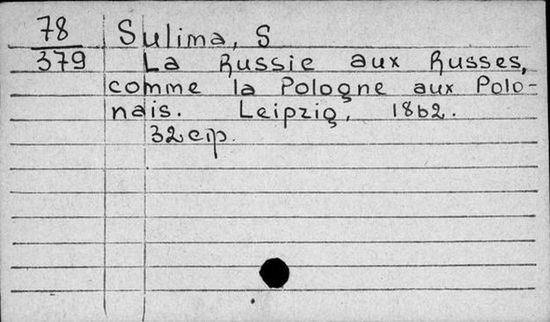 78
379
Sulima, S
La Russie aux Russes,
comme la Pologne aux Polo-
nais. Leipzig, 1862.
32 стр.